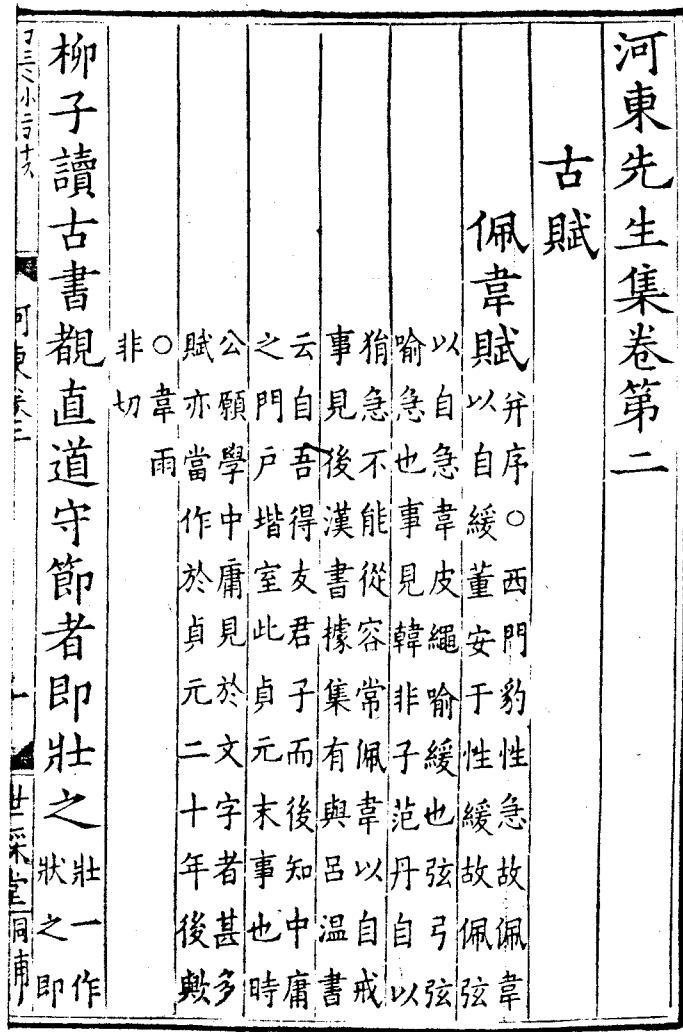 河東先生集卷第二
古賦
佩韋賦 并序○西門豹性急故佩韋
以自緩董安于性緩故佩弦
以自急韋皮繩喻緩也弦弓弦
喻急也事見韓非子范丹自以
狷急不能從容常佩韋以自戒
事見後漢書據集有與呂溫書
云自吾得友君子而後知中庸
之門戶堦室此貞元末事也時
公願學中庸見於文字者甚多
賦亦當作於貞元二十年後歟
○韋雨
非切
柳子讀古書覩直道守節者即壯之 壯一作
狀之即
河東卷二
一
世綵堂